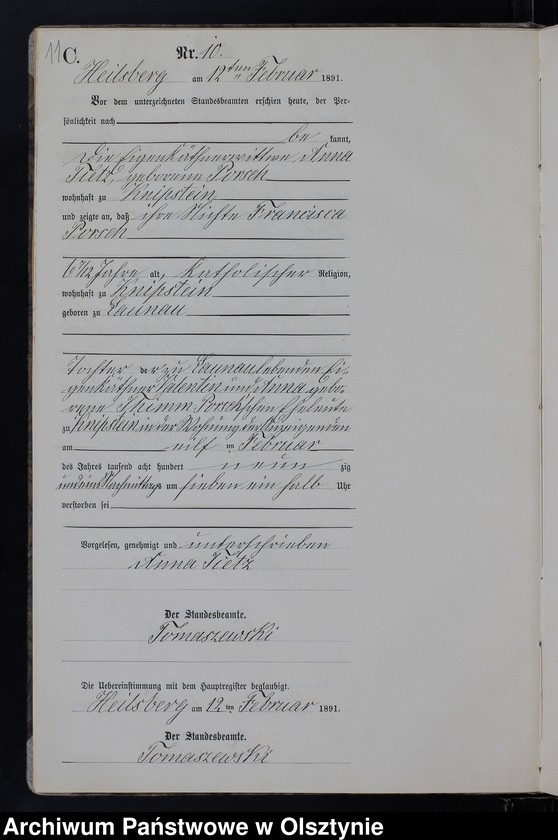 11
C.
Nr. 10.
Heilsberg am 12ten Februar 1891.
Vor dem unterzeichneten Standesbeamten erschien heute, der Per-
sönlichkeit nach
be kannt,
die Eigenkäthnerwittwe Anna
Tietz, geborene Porsch
wohnhaft zu Knipstein
und zeigte an, daß ihre Nichte Francisca
Porsch
6 Jahre alt, katholischer Religion,
wohnhaft zu Knipstein
geboren zu Launau
Tochter der zu Launau lebenden Ei-
genkäthner Valentin und Anna gebo-
rene Thimm Porsch'schen Eheleute
zu Knipstein in der Wohnung der Anzeigenden
am eilf ten Februar
des Jahres tausend acht hundert neun zig
und eins Nachmittags um sieben ein halb Uhr
verstorben sei
Vorgelesen, genehmigt und unterschrieben
Anna Tietz
Der Standesbeamte.
Tomaszewski
Die Uebereinstimmung mit dem Hauptregister beglaubigt.
Heilsberg am 12 ten Februar 1891.
Der Standesbeamte.
Tomaszewski
Archiwum Państwowe w Olsztynie